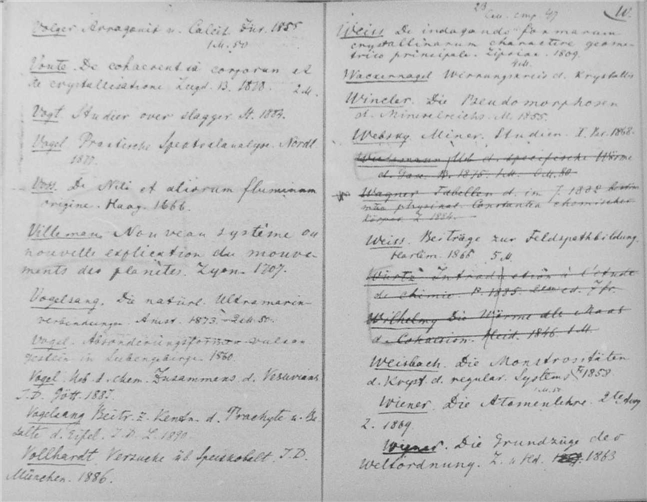 Volger Arragonit u. Calcit. Zür. 1855
1 M. 50
Voute. De cohaerentiâ corporum et
de crystallisatione. Lugd. B. 1818. 2 M.
Vogt Studier over slagger. St. 1884.
Vogel Practische Spectralanalyse. Nördl.
1877.
Voss. De Nili et aliorum fluminum
origine. Haag 1666.
Villemau Nouveau système ou
nouvelle explication du mouve-
ments des planètes. Lyon. 1707.
Vogelsang. Die natürl. Ultramarin-
verbindungen. Amst. 1873. 2 M. 50.
Vogel. Absonderungsformen vulcan
gestein im Siebengebirge.
Vogel chem. Zusammens d. Vesuvians
I.D. Gött. 1887.
Vogelsang Beitr. z. Kenntn. d. Trachyte u. Ba-
salte d. Eifel. I.D. 1890.
Vollhardt Versuche üb. Speiskobalt. I.D.
München. 1886.
W.
Weiss De indagando formarum
crystallinarum charactere geome-
trico principale. Lipsiae. 1809.
Wackernagel Wernungskreis d. Krystalle
Wincler. Die Pseudomorphosen
d. Mineralreichs. M. 1855.
Websky Miner. Studien. I. 1868.
Wiedemann d. specifische Wärme
d. Gase.
Wagner Tabellen d. in J. 1882
physikal. Constanten chemischer
Körper L.
Weiss. Beiträge zur Feldspathbildung.
Haarlem. 1866 5 M.
Würtz Introd
de chimie. P. 1885. 7 fr.
Wilhelmy Die Wärme als Maas
d. Cohaesion. Heid. 1 M.
Weisbach. Die Monstrositäten
d. Kryst. d. regular. Systems. F. 1858.
Wiener. Die Atomenlehre. 2te
L. 1869.
Wiener. Die Grundzüge der
Weltordnung. L. u. Hd. 1863